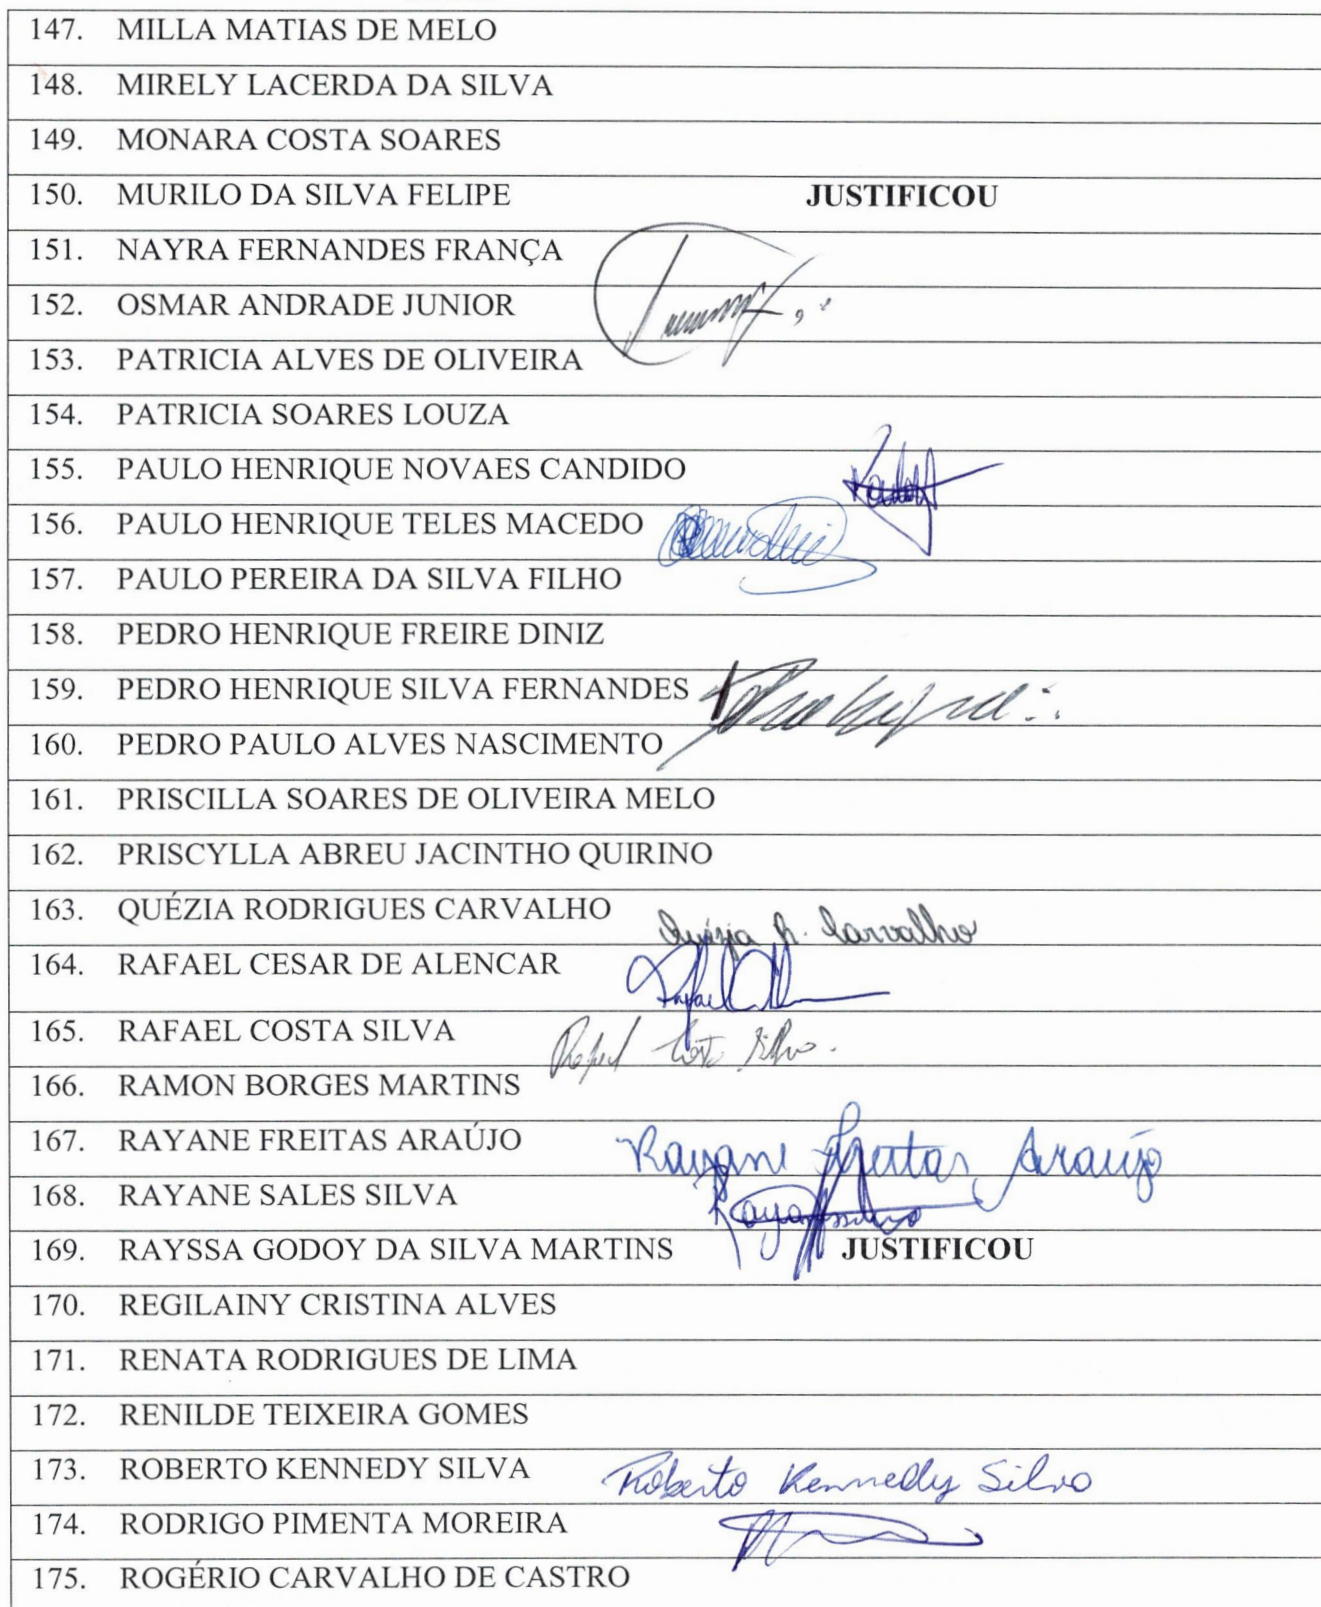 147. MILLA MATIAS DE MELO
148. MIRELY LACERDA DA SILVA
149. MONARA COSTA SOARES
150. MURILO DA SILVA FELIPE JUSTIFICOU
151. NAYRA FERNANDES FRANÇA
152. OSMAR ANDRADE JUNIOR
153. PATRICIA ALVES DE OLIVEIRA
154. PATRICIA SOARES LOUZA
155. PAULO HENRIQUE NOVAES CANDIDO
156. PAULO HENRIQUE TELES MACEDO
157. PAULO PEREIRA DA SILVA FILHO
158. PEDRO HENRIQUE FREIRE DINIZ
159. PEDRO HENRIQUE SILVA FERNANDES
160. PEDRO PAULO ALVES NASCIMENTO
161. PRISCILLA SOARES DE OLIVEIRA MELO
162. PRISCYLLA ABREU JACINTHO QUIRINO
163. QUÉZIA RODRIGUES CARVALHO Quézia R. Carvalho
164. RAFAEL CESAR DE ALENCAR Rafael
165. RAFAEL COSTA SILVA Rafael Costa Silva.
166. RAMON BORGES MARTINS
167. RAYANE FREITAS ARAÚJO Rayane Freitas Araújo
168. RAYANE SALES SILVA
169. RAYSSA GODOY DA SILVA MARTINS JUSTIFICOU
170. REGILAINY CRISTINA ALVES
171. RENATA RODRIGUES DE LIMA
172. RENILDE TEIXEIRA GOMES
173. ROBERTO KENNEDY SILVA Roberto Kennedy Silva
174. RODRIGO PIMENTA MOREIRA
175. ROGÉRIO CARVALHO DE CASTRO